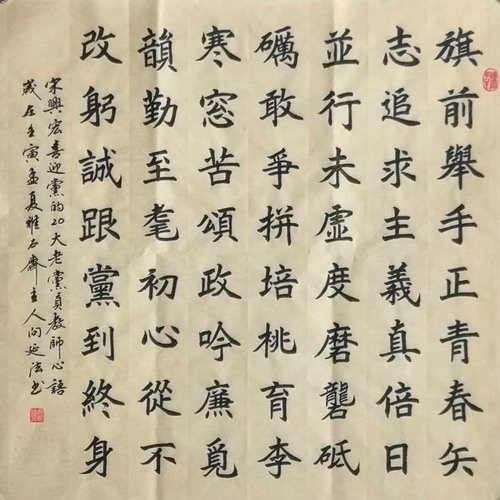 旗前舉手正青春矢
志追求主義真倍日
並行未虛度磨礱砥
礪敢爭拼培桃育李
寒窓苦頌政吟廉覓
韻勤至耄初心從不
改躬誠跟黨到終身
宋興宏喜迎黨的20大老黨員教師心語
歲在壬寅孟夏雅石齋主人向延法書